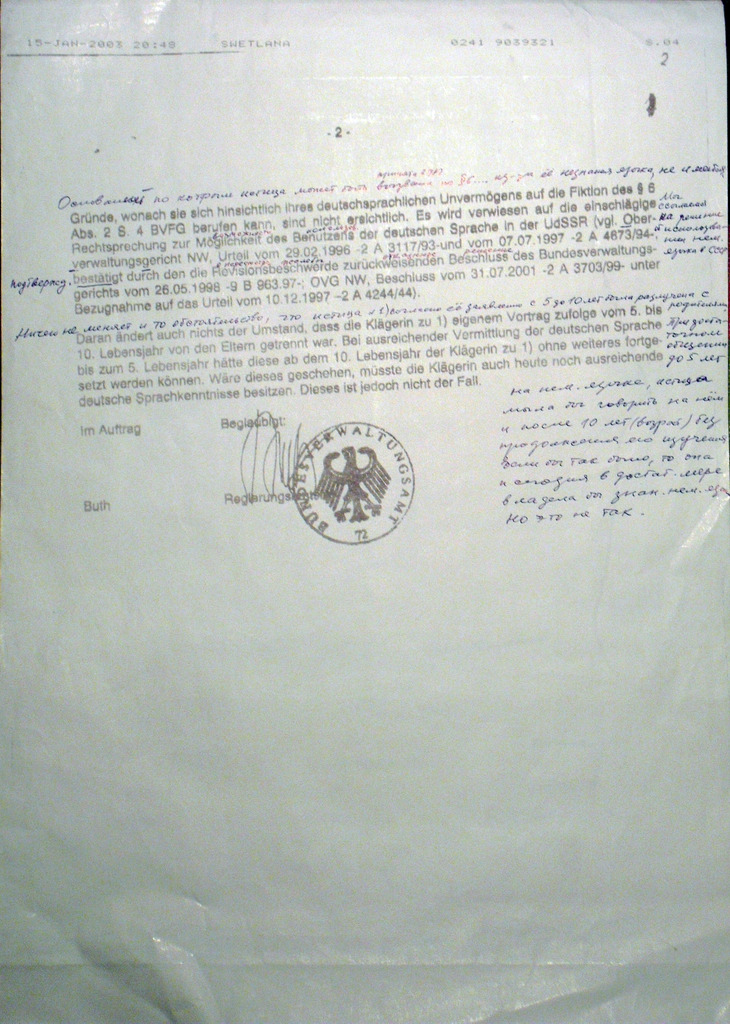 15-JAN-2003 20:48 SWETLANA 0241 9039321 S.04
2
- 2 -
по которым истица может быть
Gründe, wonach sie sich hinsichtlich ihres deutschsprachlichen Unvermögens auf die Fiktion des § 6
Abs. 2 S. 4 BVFG berufen kann, sind nicht ersichtlich. Es wird verwiesen auf die einschlägige
Rechtsprechung zur Möglichkeit des Benutzens der deutschen Sprache in der UdSSR (vgl. Ober-
verwaltungsgericht NW, Urteil vom 29.02.1996 -2 A 3117/93-und vom 07.07.1997 -2 A 4873/94-,
bestätigt durch den die Revisionsbeschwerde zurückweisenden Beschluss des Bundesverwaltungs-
gerichts vom 26.05.1998 -9 B 963.97-; OVG NW, Beschluss vom 31.07.2001 -2 A 3703/99- unter
Bezugnahme auf das Urteil vom 10.12.1997 –2 A 4244/44).
Ничего не меняет и то обстоятельство, что истица 1) согласно её заявлению с 5 до 10 лет была разлучена с
родителями
Daran ändert auch nichts der Umstand, dass die Klägerin zu 1) eigenem Vortrag zufolge vom 5. bis
10. Lebensjahr von den Eltern getrennt war. Bei ausreichender Vermittlung der deutschen Sprache
bis zum 5. Lebensjahr hätte diese ab dem 10. Lebensjahr der Klägerin zu 1) ohne weiteres fortge-
setzt werden können. Wäre dieses geschehen, müsste die Klägerin auch heute noch ausreichende
deutsche Sprachkenntnisse besitzen. Dieses ist jedoch nicht der Fall.
до 5 лет
на нем. языке, истица
могла бы говорить на нём
и после 10 лет (возраст) без
продолжения его изучения
Если бы так было, то она
и сегодня в достат. мере
владела бы знан. нем. яз.
Но это не так.
Im Auftrag Beglaubigt:
Buth
BUNDESVERWALTUNGSAMT
72